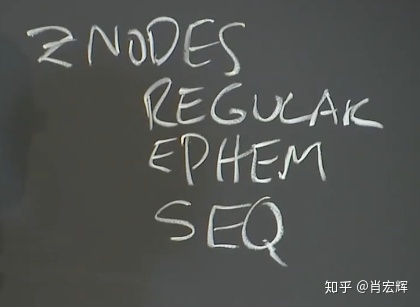 ZNODES
REGULAR
EPHEM
SEQ
知乎 @肖宏辉